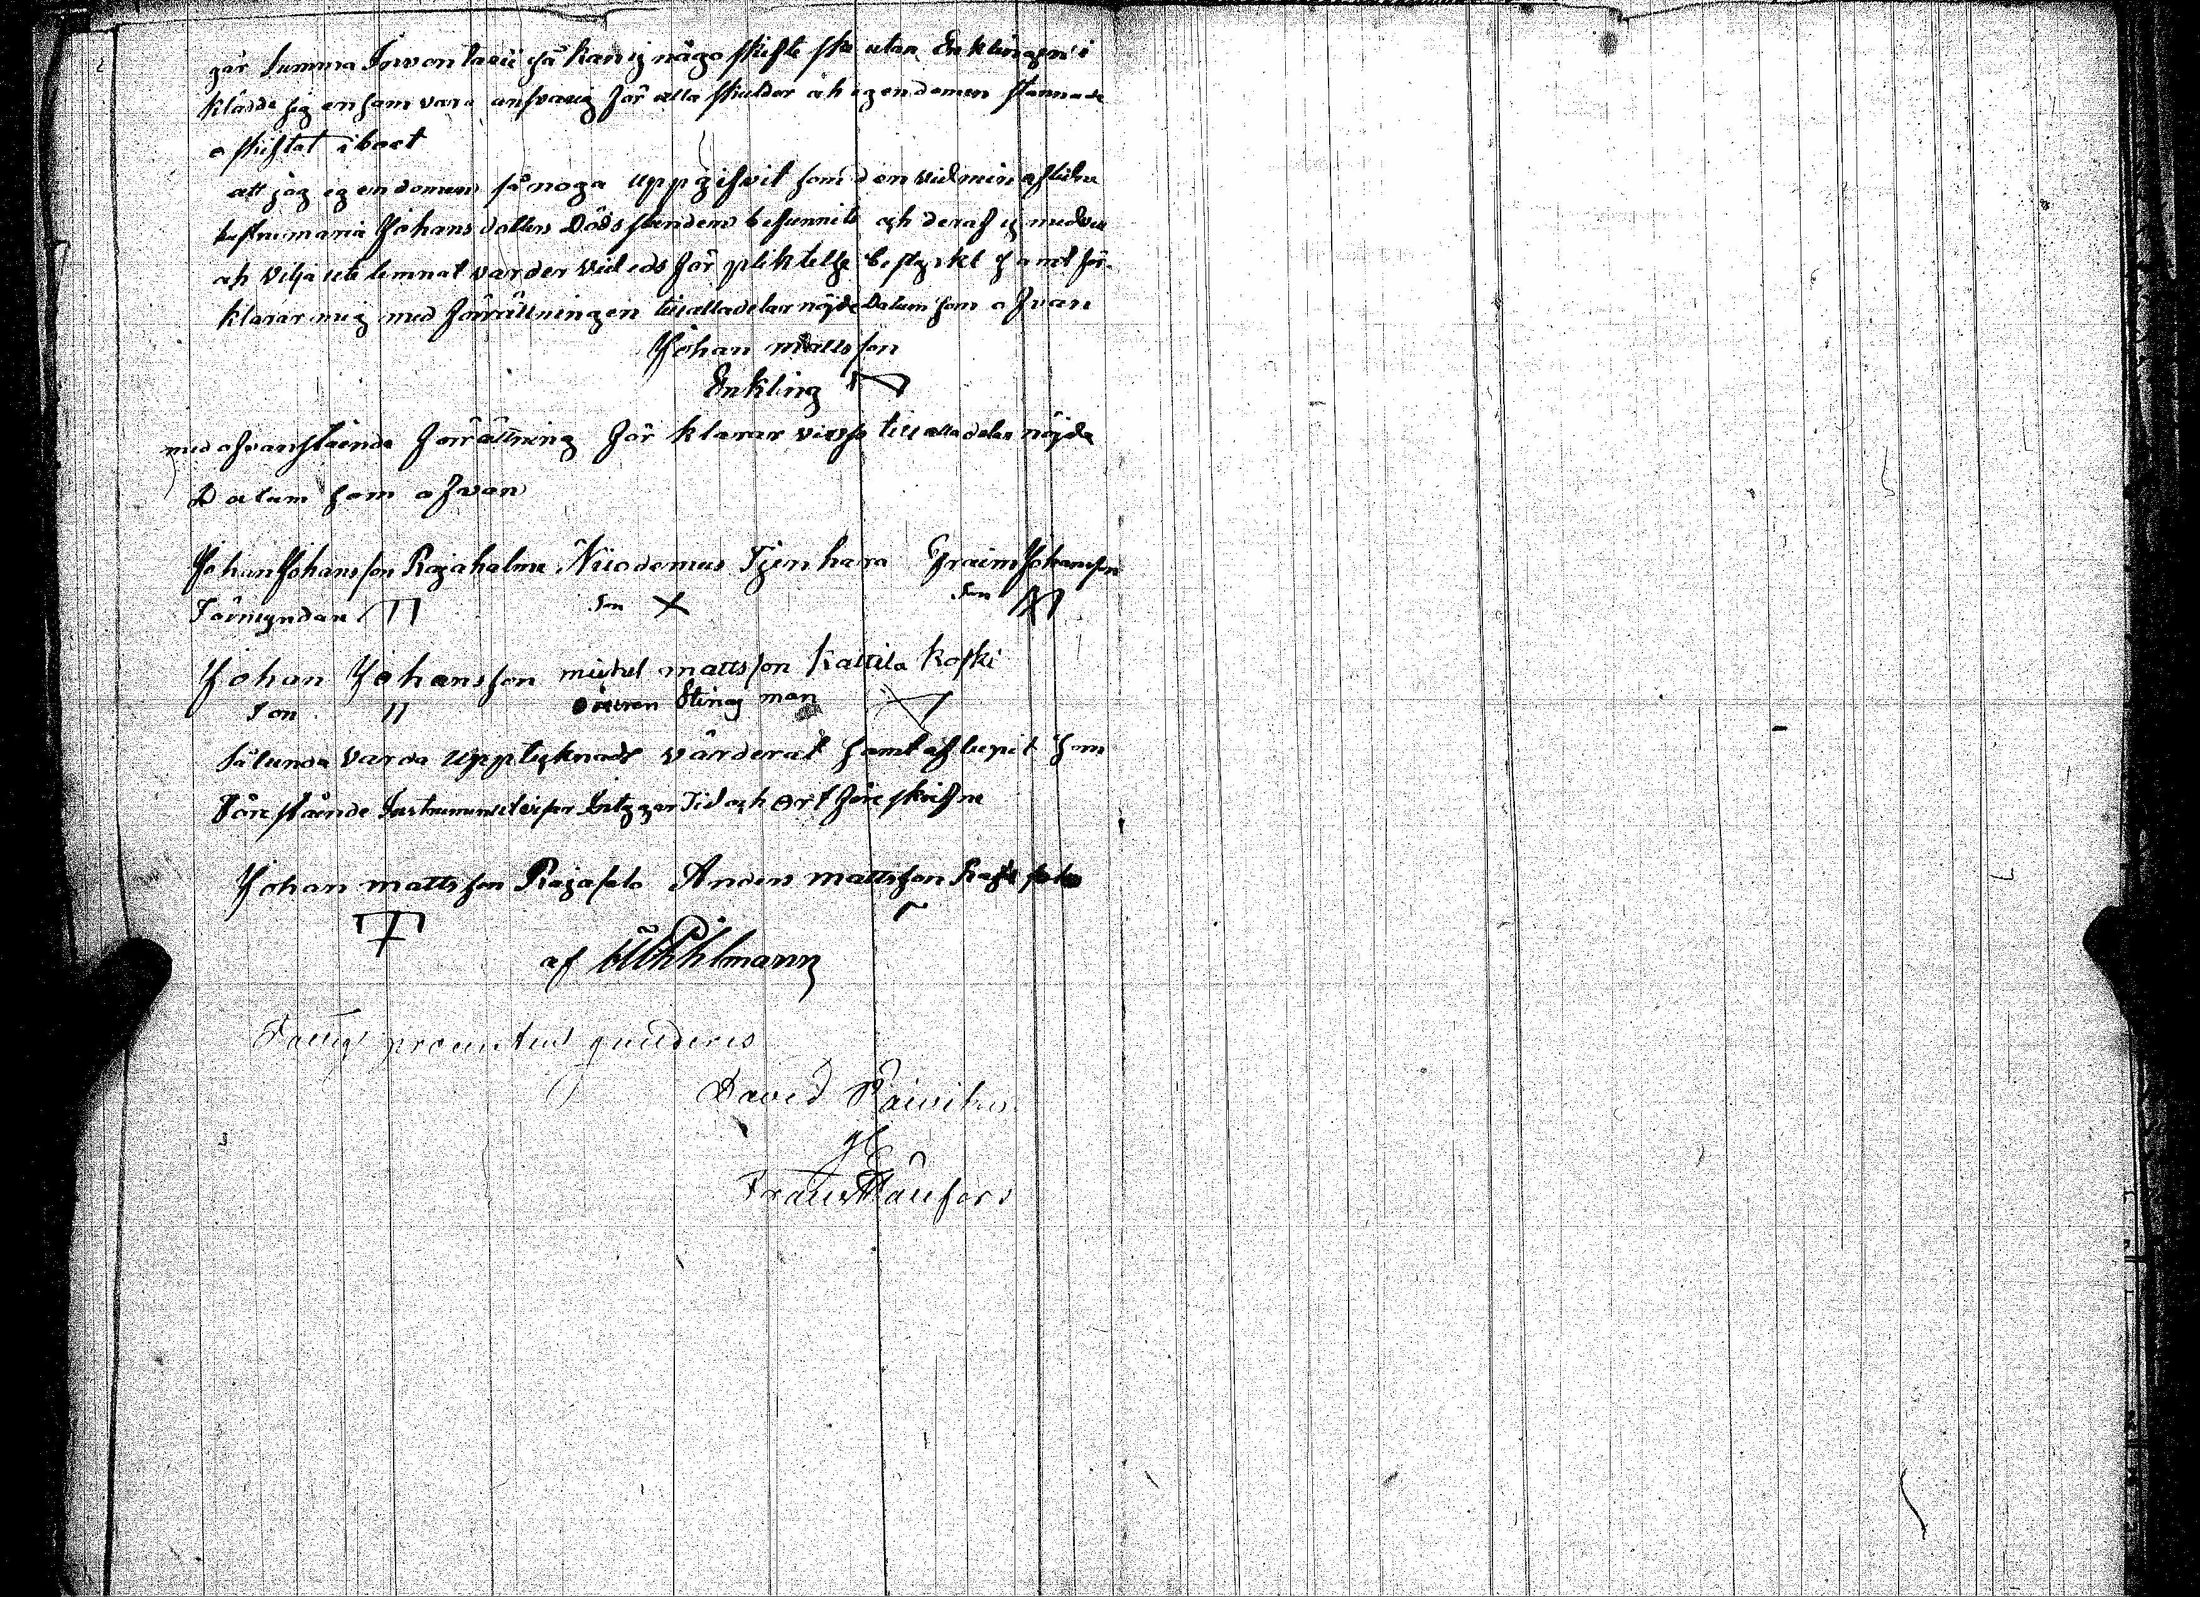 går Summa Inventarii så kan ej någo skifte ske utan Enklingen i
klädde sig ensam vara ansvarig för alla skulder åh egendomen stannade
oskiftat i boet
att jag egendomen så noga uppgifvit som den vid min aflidne
hustru maria Johans dotters Dödsstunden befunnits och deraf ej med vett
åh vilja ute lemnat varder vid eds för pliktelse bestyrkt samt för-
klarar mig med förrättningen till alla delar nöjde Datum som ofvan
Johan mattsson
Enkling
med ofvanstående förrättning för klarar vi oss till alla delar nöjda
Datum som ofvan
Johan Johansson Rajahalme Nicodemus Tjenhara Efraim Johansson
Förmyndare Son Son
Johan Johansson mickel mattsson Kattila koski
Son man
Sålunda varda upptecknadt värderat samt aflupit som
Före stående Instrument Tid och Ort föreskrifne
Johan mattsson Rajasalo Anders mattsson
af Pihlmann
Fattig procenten qvitteras
David
Frans